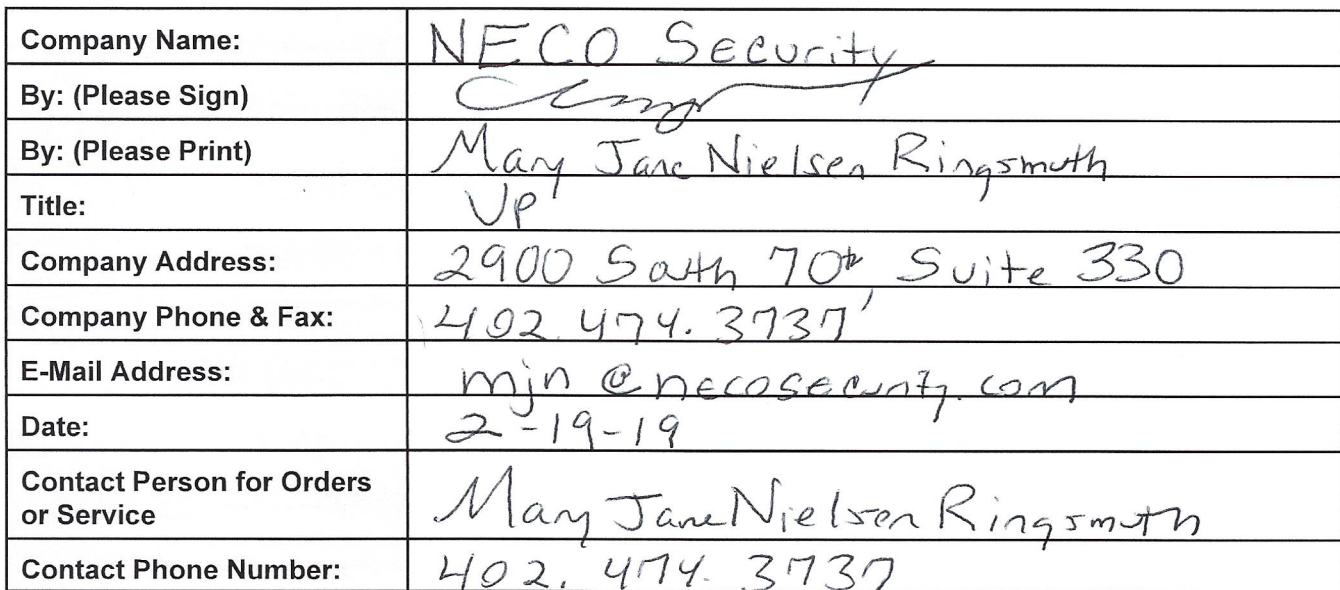 Company Name: NECO Security
By: (Please Sign)
By: (Please Print) Mary Jane Nielsen Ringsmuth
Title: VP
Company Address: 2900 South 70th Suite 330
Company Phone & Fax: 402.474.3737
E-Mail Address: mjn@necosecurity.com
Date: 2-19-19
Contact Person for Orders
or Service Mary Jane Nielsen Ringsmuth
Contact Phone Number: 402.474.3737